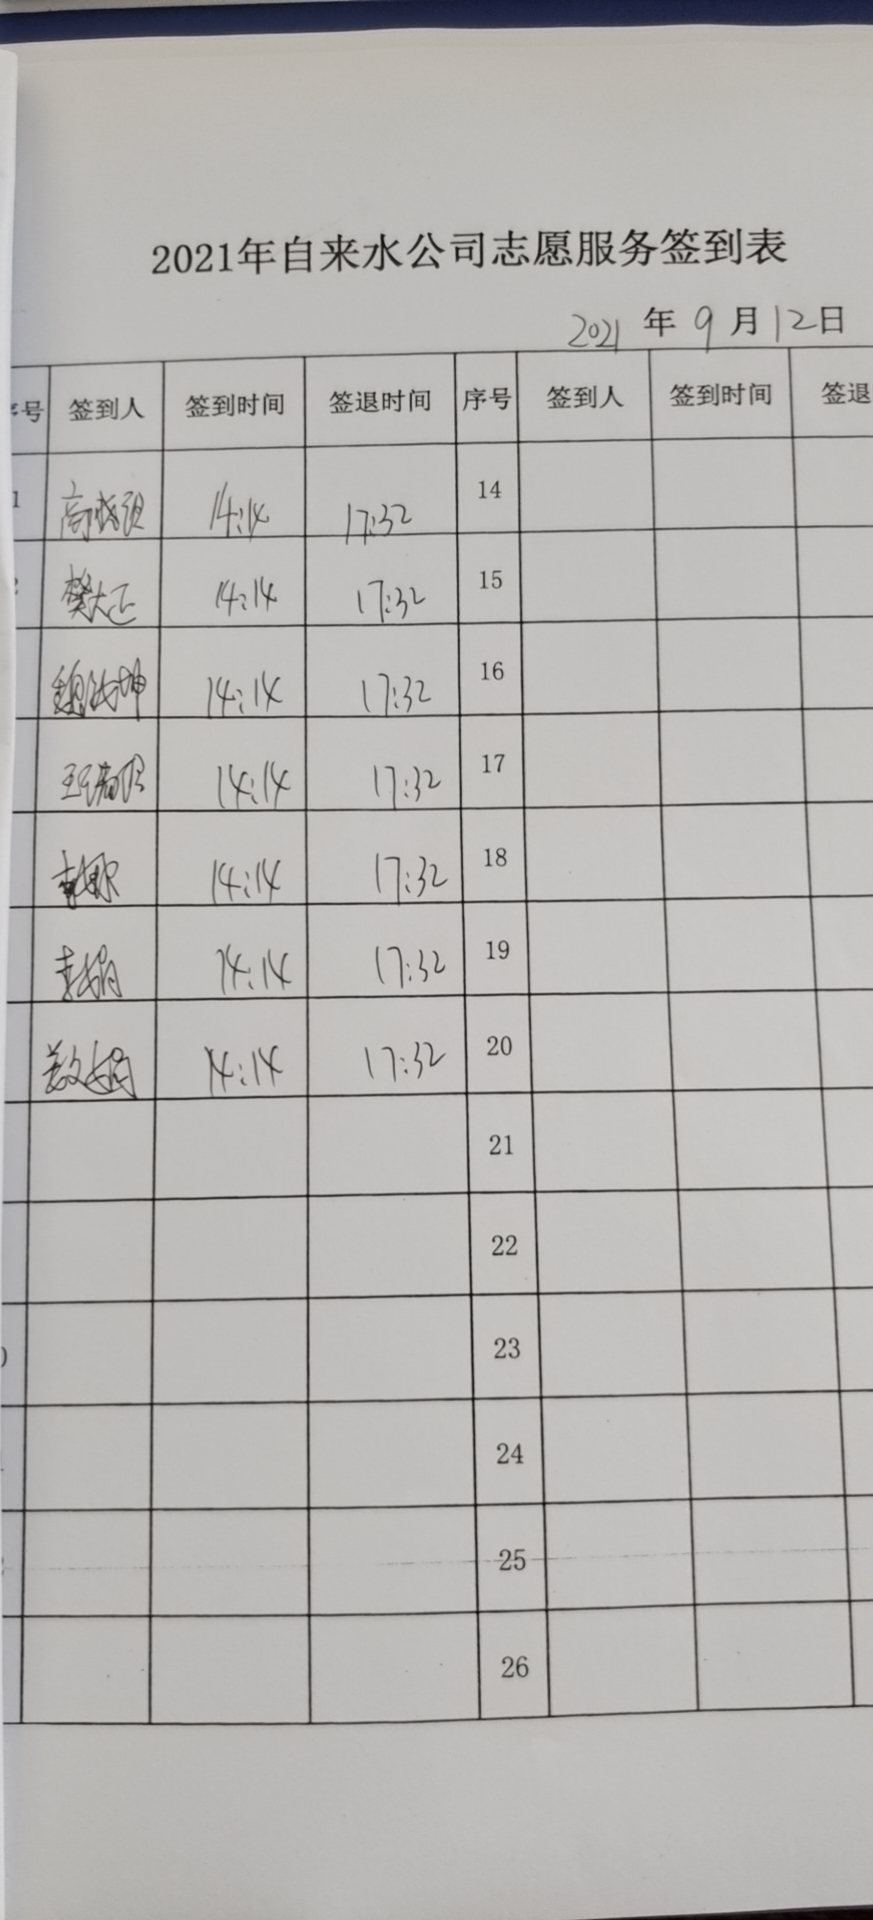 2021年自来水公司志愿服务签到表
2021 年 9 月 12 日
序号 签到人 签到时间 签退时间 序号 签到人 签到时间 签退
1 14:14 17:32 14
樊大正 14:14 17:32 15
14:14 17:32 16
14:14 17:32 17
14:14 17:32 18
李娟 14:14 17:32 19
郑娟 14:14 17:32 20
21
22
23
24
25
26